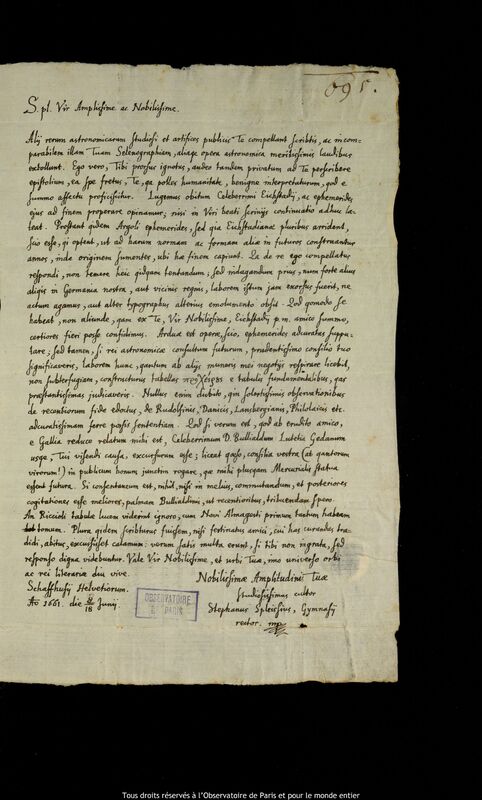 695.
S. pl. Vir Amplissime ac Nobilissime.
Alij rerum astronomicarum studiosi et artifices publicis Te compellant scribtis, ac incom-
parabilem illam Tuam Selenographiam, aliaque opera astronomica meritissimis laudibus
extollunt. Ego vero, Tibi prorsus ignotus, audeo tandem privatum ad Te perscribere
epistolium, ea spe fretus, Te, qa polles humanitate, benigne interpretaturum, qod e
summo affectu proficiscitur. Lugemus obitum Celeberrimi Eichstadij, ac ephemerides
ejus ad finem properare opinamur, nisi in Viri beati scrinijs continuatio adhuc la-
teat. Prostant qidem Argoli ephemerides, sed qia Eichstadianæ pluribus arrident,
scio esse, qi optent, ut ad harum normam ac formam aliæ in futuros construantur
annos, inde originem sumentes, ubi hæ finem capiunt. Ea de re ego compellatus
respondi, non temere heic qidqam tentandum; sed indagandum prius, num forte alius
aliqis in Germania nostra, aut vicinis regnis, laborem istum jam exorsus fuerit, ne
actum agamus, aut alter typographus alterius emolumento obsit. Qod qomodo se
habeat, non aliunde, qam ex Te, Vir Nobilissime, Eichstadij p.m. amico summo,
certiores fieri posse confidimus. Ardua est operæ, scio, ephemerides adcuratas suppu-
tare; sed tamen, si rei astronomicæ consultum futurum, prudentissimo consilio tuo
significaveris, laborem hunc, qantum ab alijs muneris mei negotijs respirare licebit,
non subterfugiam, constructurus tabellas προχείρους e tabulis fundamentalibus, qas
præstantissimas judicaveris. Nullus enim dubito, qin solertissimis observationibus
de recentiorum fide edoctus, de Rudolfinis, Danicis, Lansbergianis, Philolaicis etc.
adcuratissimam ferre possis sententiam. Qod si verum est, qod ab erudito amico,
e Gallia reduce relatum mihi est, Celeberrimum D. Bullialdum Lutetia Gedanum
usqe, Tui visendi causa, excursurum esse; liceat qæso, consilia vestra (at qantorum
virorum!) in publicum bonum junctim rogare, qæ mihi plusqam Mercurialis statua
essent futura. Si consentaneum est, nihil, nisi in melius, commutandum, et posteriores
cogitationes esse meliores, palmam Bullialdinis, ut recentioribus, tribuendam spero.
An Riccioli tabulæ lucem viderint ignoro, cum Novi Almagesti primum tantum habeam
tomum. Plura qidem scribturus fuissem, nisi festinatus amici, cui has curandas tra-
didi, abitus, excussisset calamum: verum satis multa erunt, si tibi non ingrata, sed
responso digna videbuntur. Vale Vir Nobilissime, et urbi Tuæ, imo universo orbi
ac rei literariæ diu vive.
Nobilissimæ Amplitudini Tuæ
Schaffhusij Helvetiorum.
studiosissimus cultor
Ao 1661. die 8/18 Junij.
Stephanus Spleissius, Gymnasij
rector. mp
OBSERVATOIRE
DE PARIS
Tous droits réservés à l'Observatoire de Paris et pour le monde entier